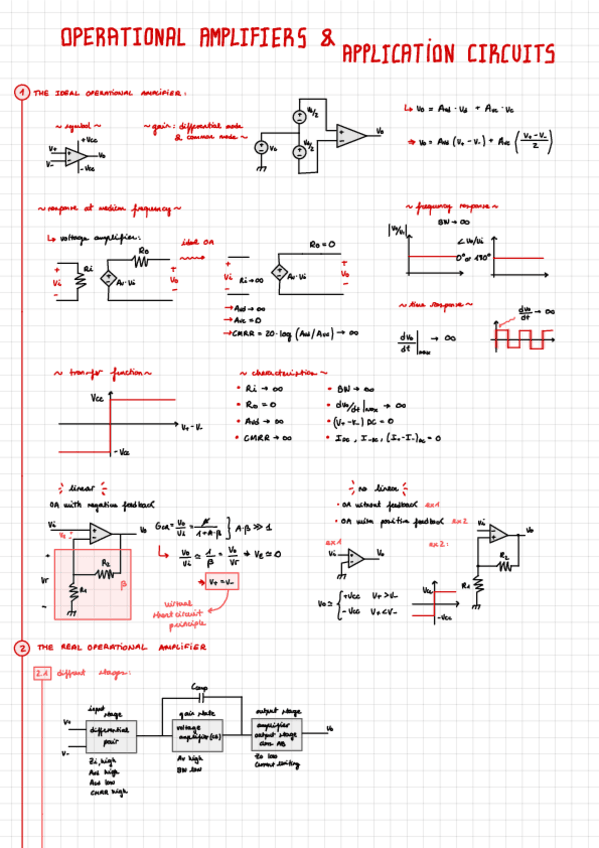 OPERATIONAL AMPLIFIERS &
APPLICATION CIRCUITS
1 THE IDEAL OPERATIONAL AMPLIFIER:
~ symbol ~
+Vcc
V+
V-
Vo
-Vcc
~ gain: differential mode
& common mode ~
Vd/2
Vd/2
Vc
Vo
↳ Vo = Avd · Vd + Avc · Vc
⇒ Vo = Avd (V+ - V-) + Avc (V+ - V- / 2)
~ response at medium frequency ~
↳ voltage amplifier:
Ro
+ Vi -
Ri
Av·Vi
+ Vo -
ideal OA
+ Vi -
Ri → ∞
Ro = 0
Av·Vi
+ Vo -
→ Avd → ∞
→ Avc = 0
→ CMRR = 20·log (Avd/Avc) → ∞
~ frequency response ~
BW → ∞
|Vo/Vi|
∠ Vo/Vi
0° or 180°
~ time response ~
dVo/dt |max → ∞
dVo/dt → ∞
~ transfer function ~
Vcc
V+ - V-
- Vcc
~ characteristics ~
• Ri → ∞
• Ro = 0
• Avd → ∞
• CMRR → ∞
• BW → ∞
• dVo/dt |max → ∞
• (V+ - V-) DC = 0
• I+DC, I-DC, (I+ - I-)DC = 0
linear
OA with negative feedback
Vi
Vo
Vr
R2
R1
β
GCR = Vo/Vi = A/1+A·β } A·β >> 1
↳ Vo/Vi ≃ 1/β = Vo/Vr ⇒ Vε ≃ 0
→ V+ = V-
virtual
short circuit
principle
no linear
• OA without feedback ex1
• OA with positive feedback ex2
ex1
Vi
Vo
ex2:
Vi
Vo
R2
R1
Vo ≃ { +Vcc V+ > V-
- Vcc V+ < V-
Vcc
-Vcc
2 THE REAL OPERATIONAL AMPLIFIER
2.1 different stages:
Comp
input
stage
gain state
output stage
V+
V-
differential
pair
voltage
amplifier
amplifier
output stage
class AB
Vo
Zi, high
Avd high
Avd low
CMRR high
Av high
BW low
Zo low
current limiting